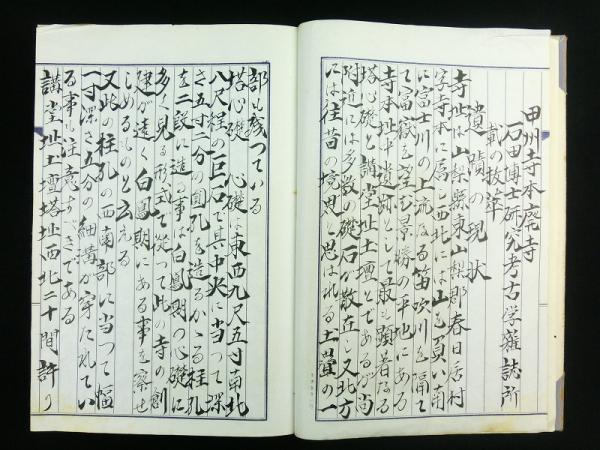 甲州寺本廃寺
石田博士研究考古学雑誌所
載の抜萃
遺蹟の現状
寺址は山梨縣東山梨郡春日居村
字寺本に属し西北には山を負い南
に富士川の上流なる笛吹川を隔て
て富嶽を望む景勝の平地にある
寺本址中遺跡として最も顕著なる
塔心礎と講堂址土壇とであるが尚
附近には多数の礎石が散在し又北方
には往昔の境界と思はれる土畳の一
部も残つている
塔心礎 心礎は東西九尺五寸南北
八尺程の巨石で其中央に当つて深
さ五寸二分の圓孔を造るかゝる柱孔
を二段に造る事は白鳳期の心礎に
多く見る形式で従つて此の寺の創
建が遠く白鳳期にある事を察せ
しめるものと云える
又此の柱孔の西南部に当つて幅
一寸深さ五分の細溝が穿たれてい
る事も注意すべきである
講堂址土壇塔址西北二十間許り